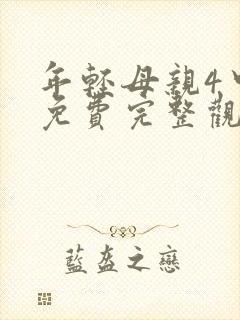 年輕母親4
免費完整觀
藍盔之戀